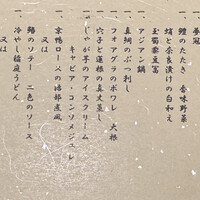 一、鰹のたたき 香味野菜
一、蛸と奈良漬けの白和え
一、玉蜀黍豆富
一、アジアン鍋
一、真鯛のぶつ刺し
一、フォアグラのポワレ 大根
一、穴子と蓮根の真丈蒸し
一、じゃが芋のアイスクリーム
キャビア・コンソメジュレ
一、京鴨ロースの治部煮風
又は
鱸のソテー 二色のソース
一、冷やし稲庭うどん
又は